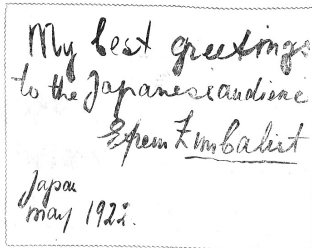 My best greetings
to the Japanese audience
Efrem Zimbalist
Japan
May 1922.